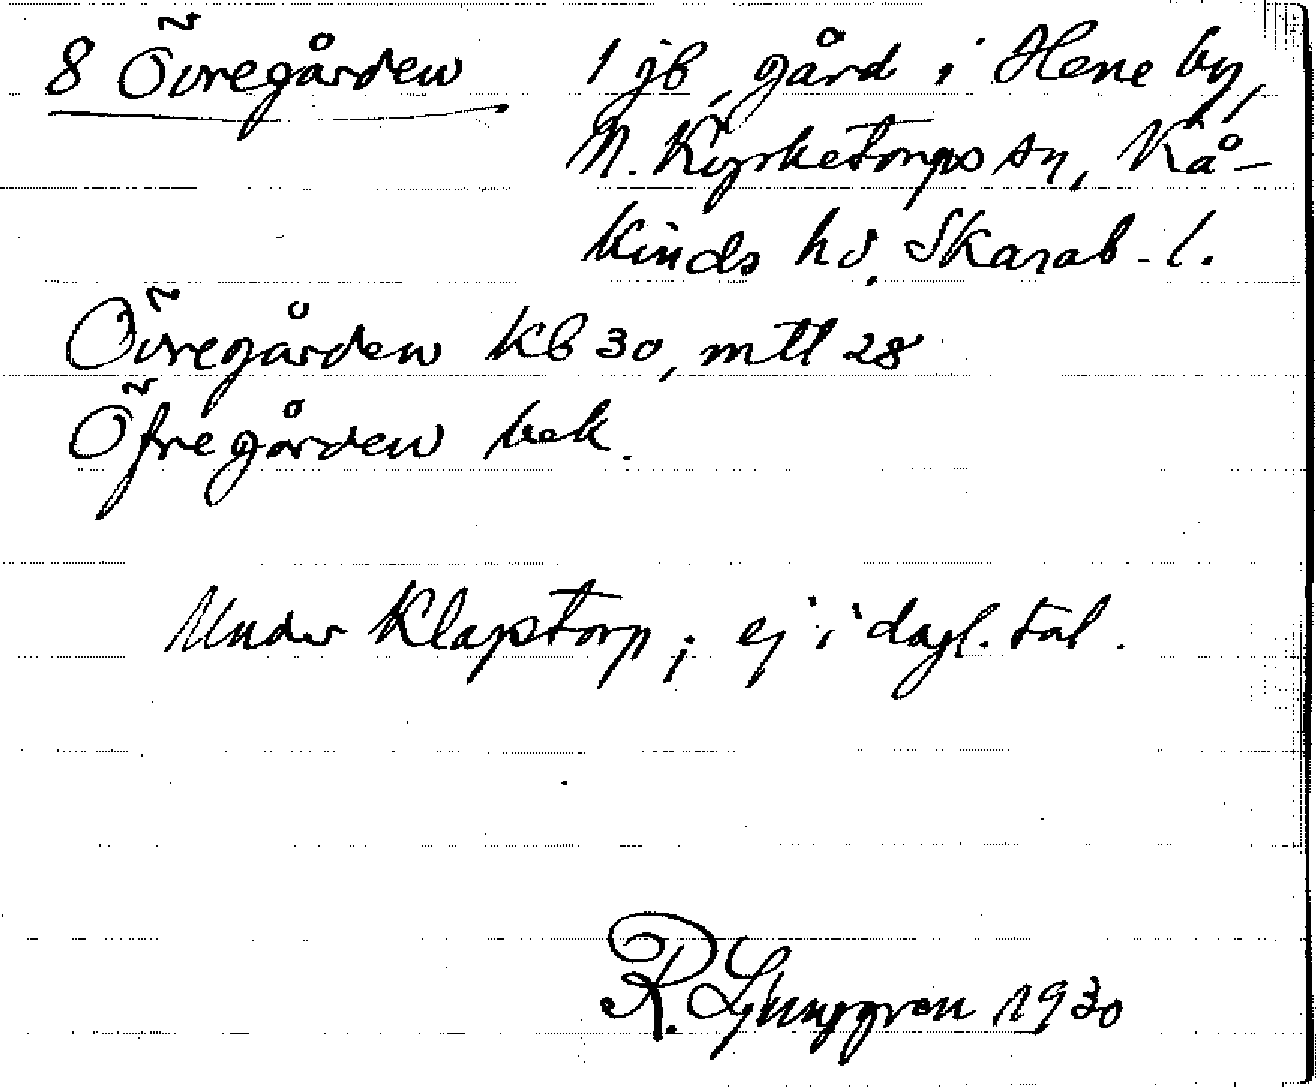 8 Övregården 1 jb, gård i Hene by,
N. Kyrketorps sn, Kå-
kinds hd. Skarab. l.
Övregården kb 30, mtl 28
Öfregården bek.
Under Klaptorp; ej i dagl. tal.
R. Ljunggren 1930